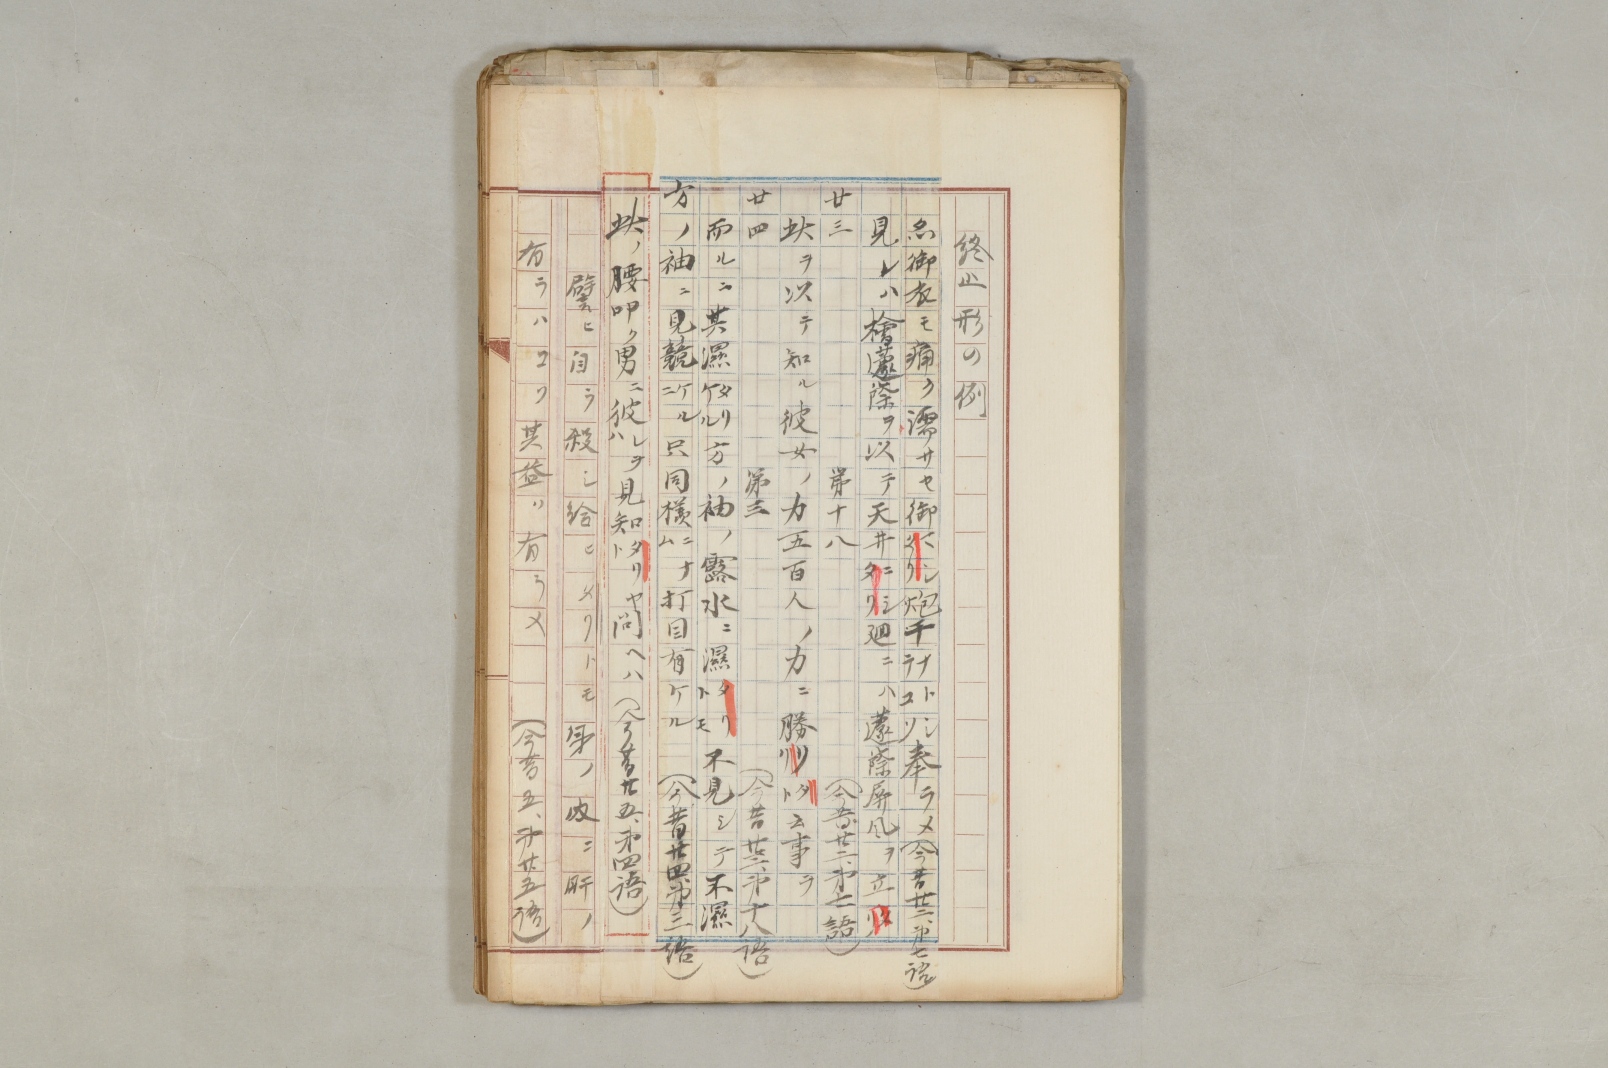 終止形の例
御衣モ痛ク濡サセ御タリ 炮干ナトシテコソ奉ラメ(今昔廿二、第七語)
見レハ檜籧篨ヲ以テ天井ニシタリ 廻ニハ籧篨屏風ヲ立タリ
(今昔廿二、第七語)
廿三 第十八
此ヲ以テ知ル彼女ノ力五百人ノ力ニ勝タリト云事ヲ
(今昔廿三、第十八語)
廿四 第三
而ルニ其濕タリケル方ノ袖ノ露水ニ濕タリトモ不見シテ不濕
方ノ袖ニ見競ケルニ只同様ニナム打目有ケル(今昔廿四、第三語)
此ノ腰叩ク男ニ彼レヲハ見知タリヤト問ヘハ(今昔廿五、第四語)
譬ヒ自ラ殺シ給ヒタリトモ身ノ皮ニ肝ノ
有ラハコソ其益ハ有ラメ(今昔五、第廿五語)